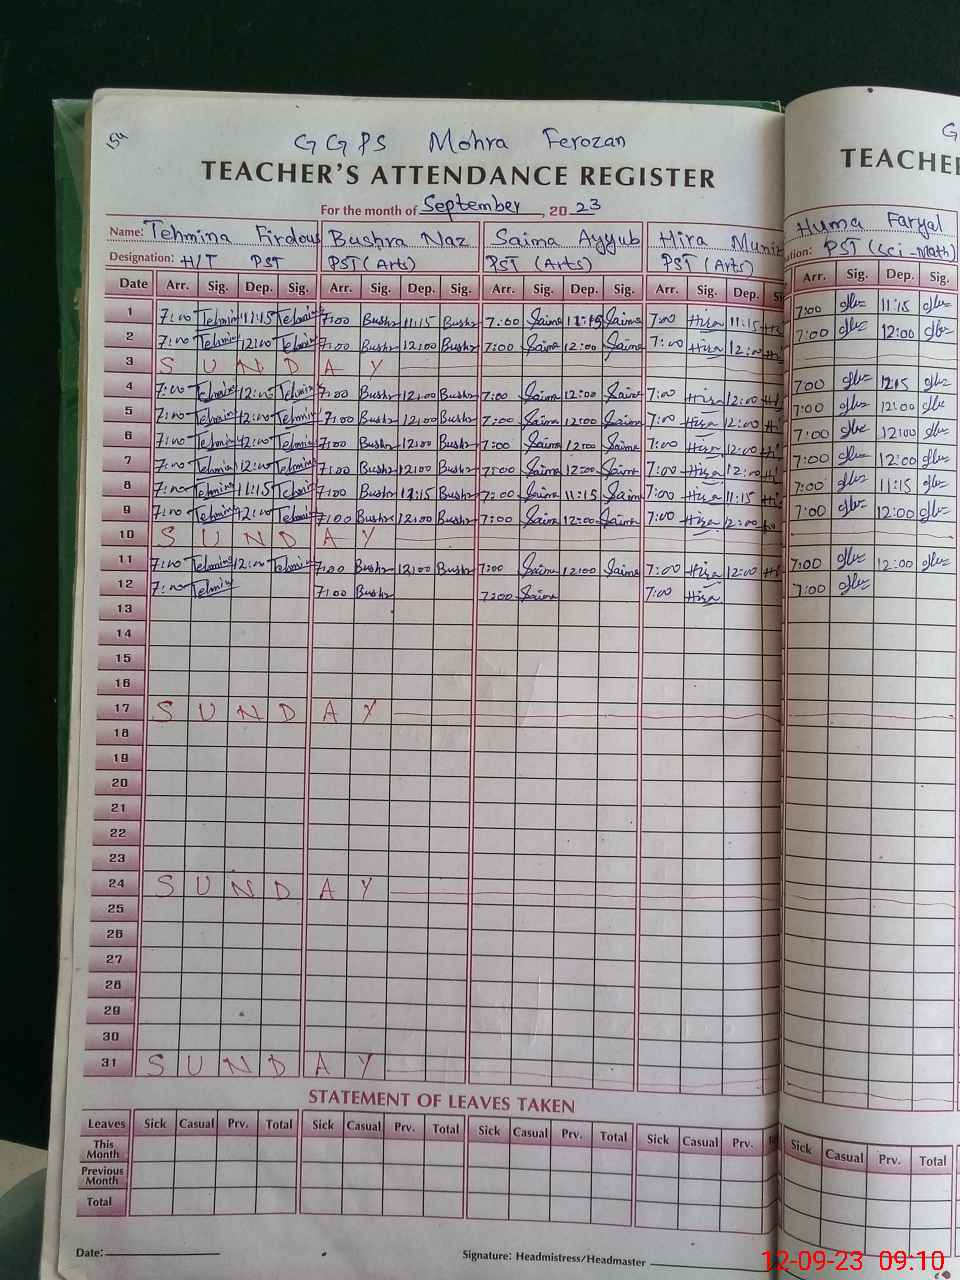 154
G G P S Mohra Ferozan
G
TEACHER'S ATTENDANCE REGISTER
TEACHE
For the month of September, 2023
Name: Tehmina Firdous Bushra Naz Saima Ayyub Hira Muni Huma Faryal
Designation: H/T PST PST (Arts) PST (Arts) PST (Arts) ation: PST (Sci-Math)
Date Arr. Sig. Dep. Sig. Arr. Sig. Dep. Sig. Arr. Sig. Dep. Sig. Arr. Sig. Dep. Si Arr. Sig. Dep. Sig.
1 7:00 Tehmin 11:15 Tehmin 7:00 Bushr 11:15 Bushr 7:00 Saima 11:15 Saima 7:00 Hira 11:15 7:00 11:15
2 7:00 Tehmin 12:00 Tehmin 7:00 Bushr 12:00 Bushr 7:00 Saima 12:00 Saima 7:00 Hira 12:00 7:00 12:00
3 S U N D A Y
4 7:00 Tehmin 12:00 Tehmin 7:00 Bushr 12:00 Bushr 7:00 Saima 12:00 Saima 7:00 Hira 12:00 7:00 12:15
5 7:00 Tehmin 12:00 Tehmin 7:00 Bushr 12:00 Bushr 7:00 Saima 12:00 Saima 7:00 Hira 12:00 7:00 12:00
6 7:00 Tehmin 12:00 Tehmin 7:00 Bushr 12:00 Bushr 7:00 Saima 12:00 Saima 7:00 Hira 12:00 7:00 12:00
7 7:00 Tehmin 12:00 Tehmin 7:00 Bushr 12:00 Bushr 7:00 Saima 12:00 Saima 7:00 Hira 12:00 7:00 12:00
8 7:00 Tehmin 11:15 Tehmin 7:00 Bushr 11:15 Bushr 7:00 Saima 11:15 Saim 7:00 Hira 11:15 7:00 11:15
9 7:00 Tehmin 12:00 Tehmin 7:00 Bushr 12:00 Bushr 7:00 Saima 12:00 Saima 7:00 Hira 12:00 7:00 12:00
10 S U N D A Y
11 7:00 Tehmin 12:00 Tehmin 7:00 Bushr 12:00 Bushr 7:00 Saima 12:00 Saima 7:00 Hira 12:00 7:00 12:00
12 7:00 Tehmin 7:00 Bushr 7:00 Saima 7:00 Hira 7:00
13
14
15
16
17 S U N D A Y
18
19
20
21
22
23
24 S U N D A Y
25
26
27
28
29
30
31 S U N D A Y
STATEMENT OF LEAVES TAKEN
Leaves Sick Casual Prv. Total Sick Casual Prv. Total Sick Casual Prv. Total Sick Casual Prv. Sick Casual Prv. Total
This Month
Previous Month
Total
Date:
Signature: Headmistress/Headmaster
12-09-23 09:10